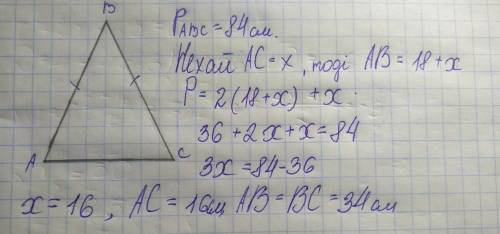 B
P_ABC = 84 см.
Нехай AC = x, тоді AB = 18 + x
P = 2(18+x) + x.
36 + 2x + x = 84
A
C
3x = 84 - 36
x = 16, AC = 16см AB = BC = 34 см